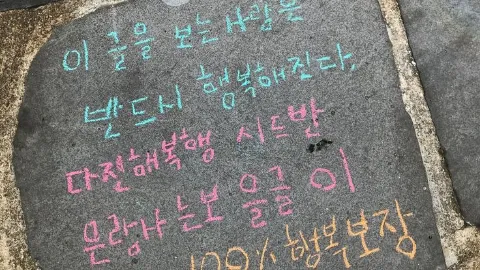 이 글을 보는 사람은
반드시 행복해진다.
다진해복행 시드반
은람사 는보 을글 이
100% 행복보장